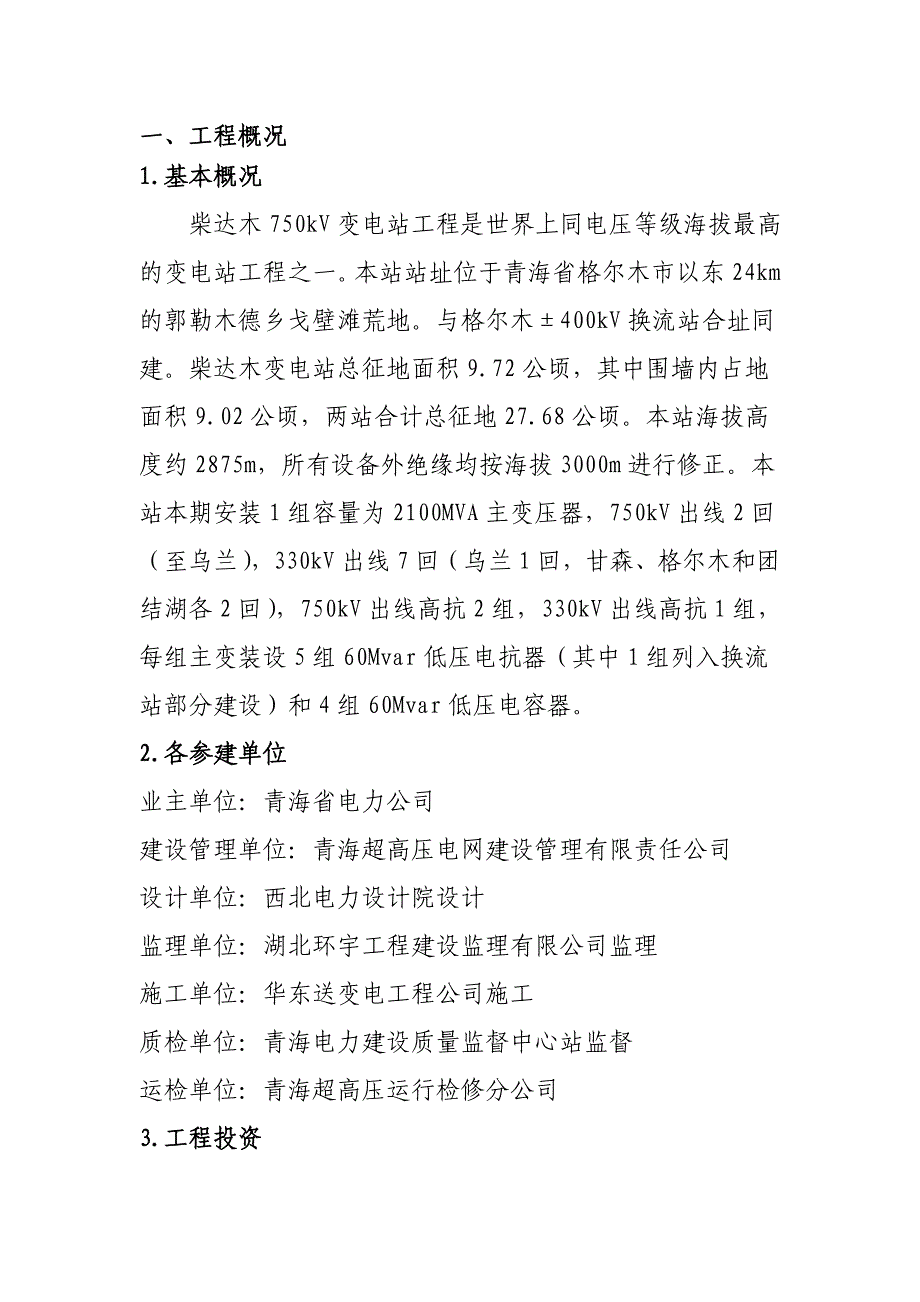 一、工程概况
1.基本概况
柴达木 750kV 变电站工程是世界上同电压等级海拔最高
的变电站工程之一。本站站址位于青海省格尔木市以东 24km
的郭勒木德乡戈壁滩荒地。与格尔木±400kV 换流站合址同
建。柴达木变电站总征地面积 9.72 公顷，其中围墙内占地
面积 9.02 公顷，两站合计总征地 27.68 公顷。本站海拔高
度约 2875m，所有设备外绝缘均按海拔 3000m 进行修正。本
站本期安装 1 组容量为 2100MVA 主变压器，750kV 出线 2 回
（至乌兰），330kV 出线 7 回（乌兰 1 回，甘森、格尔木和团
结湖各 2 回），750kV 出线高抗 2 组，330kV 出线高抗 1 组，
每组主变装设 5 组 60Mvar 低压电抗器（其中 1 组列入换流
站部分建设）和 4 组 60Mvar 低压电容器。
2.各参建单位
业主单位：青海省电力公司
建设管理单位：青海超高压电网建设管理有限责任公司
设计单位：西北电力设计院设计
监理单位：湖北环宇工程建设监理有限公司监理
施工单位：华东送变电工程公司施工
质检单位：青海电力建设质量监督中心站监督
运检单位：青海超高压运行检修分公司
3.工程投资